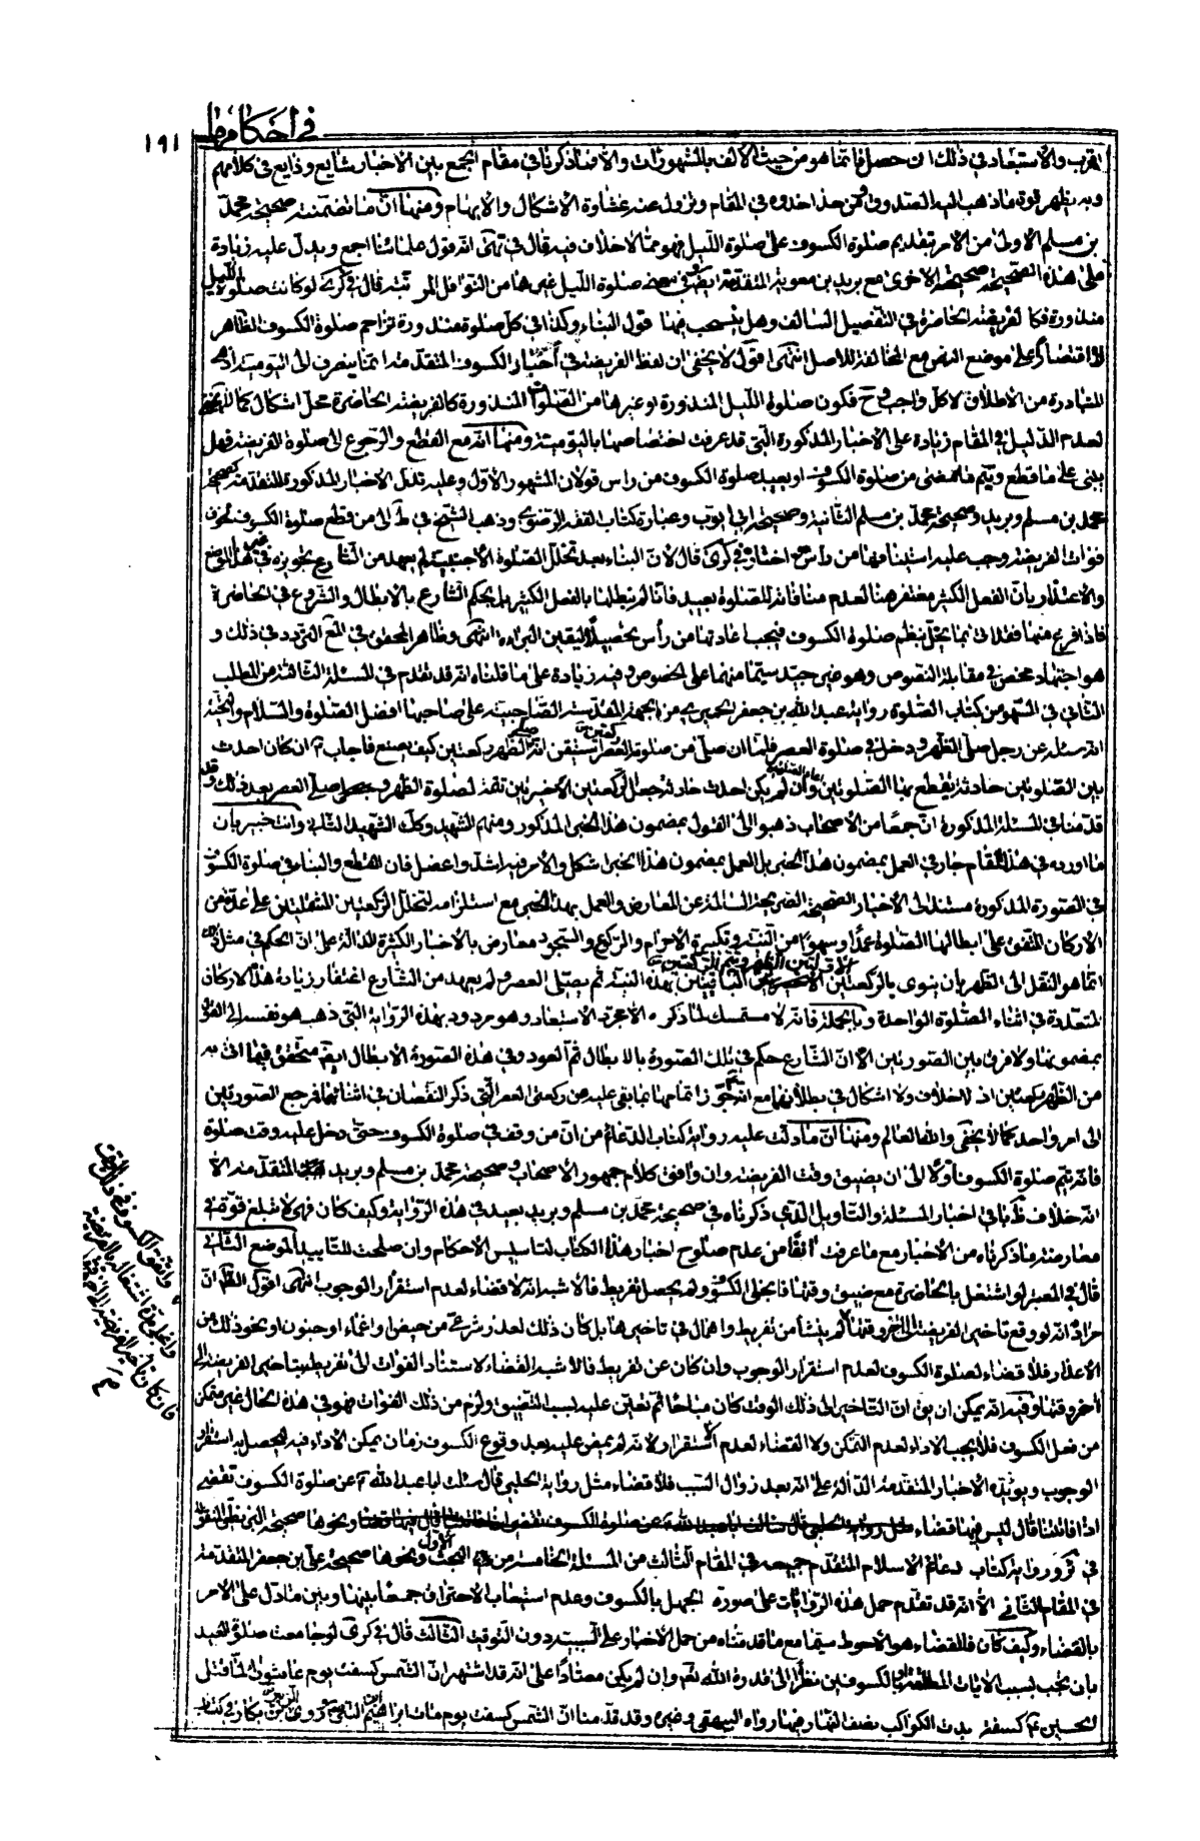 في احكامها
١٩١
القرب والاستبعاد في ذلك ان حصل فانما هو من حيث الالف بالمشهورات والا فما ذكرنا في مقام الجمع بين الاخبار شايع وذايع في كلامهم
وبه يظهر قوة ما ذهب اليه الصدوق ومن حذا حذوه في المقام وتزول عنه غشاوة الاشكال والابهام ومنها ان ما تضمنته صحيحة محمد
بن مسلم الاولى من الامر بتقديم صلوة الكسوف على صلوة الليل فهو مما لا خلاف فيه قال في هى انه قول علمائنا اجمع ويدل عليه زيادة
على هذه الصحيحة صحيحته الاخرى مع بريد بن معوية المتقدمة ايضا وفي معنى صلوة الليل غيرها من النوافل المرتبة قال في كرى لو كانت صلوة الليل
منذورة فكالفريضة الحاضرة في التفصيل السالف وهل ينسحب فيها قول البناء وكذا في كل صلوة منذورة تزاحم صلوة الكسوف الظاهر
لا اقتصارا على موضع النص مع المخالفة للاصل انتهى اقول لا يخفى ان لفظ الفريضة في اخبار الكسوف المتقدمة انما ينصرف الى اليومية اذ هي
المتبادرة من الاطلاق لا كل واجب وح فكون صلوة الليل المنذورة او غيرها من الصلوات المنذورة كالفريضة الحاضرة محل اشكال كما لا يخفى
لعدم الدليل في المقام زيادة على الاخبار المذكورة التي قد عرفت اختصاصها باليومية ومنها انه مع القطع والرجوع الى صلوة الفريضة فهل
يبنى على ما قطع ويتم ما مضى من صلوة الكسوف او يعيد صلوة الكسوف من راس قولان المشهور الاول وعليه تدل الاخبار المذكورة المتقدمة كصحيحة
محمد بن مسلم وبريد وصحيحة محمد بن مسلم الثانية وصحيحة ابي ايوب وعبارة كتاب الفقه الرضوي وذهب الشيخ في ط الى من قطع صلوة الكسوف لخوف
فوات الفريضة وجب عليه استينافها من راس واختاره في كرى قال لان البناء بعد تخلل الصلوة الاجنبية لم يعهد من الشارع تجويزه في غير هذا الموضع
والاعتذار بان الفعل الكثير مغتفر هنا لعدم منافاته للصلوة بعيد فانا لم نبطلها بالفعل الكثير بل بحكم الشارع بالابطال والشروع في الحاضرة
فاذا فرغ منها فقد اتى بما يخل بنظم صلوة الكسوف فيجب اعادتها من رأس تحصيلا ليقين البراءة انتهى وظاهر المحقق في المع التردد في ذلك و
هو اجتهاد محض في مقابلة النصوص وهو غير جيد سيما منهما على الخصوص وفيه زيادة على ما قلناه انه قد تقدم في المسئلة الثالثة من المطلب
الثاني في السهو من كتاب الصلوة رواية عبد الله بن جعفر الحميري من الجهة المقدسة الصاحبية على صاحبها افضل الصلوة والسلام والتحية
انه سئله عن رجل صلى الظهر ودخل في صلوة العصر فلما ان صلى من صلوة العصر ركعتين استيقن انه صلى الظهر ركعتين كيف يصنع فاجاب ع ان كان احدث
بين الصلوتين حادثة يقطع بها الصلوتين اعاد الصلوتين وان لم يكن احدث حادثة جعل الركعتين الاخيرتين تتمة لصلوة الظهر وصلى العصر بعد ذلك وقد
قدمنا في المسئلة المذكورة ان جمعا من الاصحاب ذهبوا الى القول بمضمون هذا الخبر المذكور ومنهم الشهيد وكك الشهيد الثاني وانت خبير بان
ما اورده في هذا المقام جار في العمل بمضمون هذا الخبر بل العمل بمضمون هذا الخبر اشكل والامر فيه اشد واعضل فان القطع والبناء في صلوة الكسوف
في الصورة المذكورة مستند الى الاخبار الصحيحة الصريحة السالمة عن المعارض والعمل بهذا الخبر مع استلزامه لتخلل الركعتين المشتملتين على عدة من
الاركان المتفق على ابطالها الصلوة عمدا وسهوا من النية وتكبيرة الاحرام والركوع والسجود معارض بالاخبار الكثيرة الدالة على ان الحكم في مثل ذلك
انما هو النقل الى الظهر بان ينوى بالركعتين الاوليين الظهر ويتم الركعتين الباقيتين بهذه النية ثم يصلي العصر ولم يعهد من الشارع اغتفار زيادة هذه الاركان
المتعددة في اثناء الصلوة الواحدة وبالجملة فانه لا مستمسك لما ذكره الا مجرد الاستبعاد وهو مردود بهذه الرواية التي ذهب هو نفسه الى القول
بمضمونها ولا فرق بين الصورتين الا ان الشارع حكم في تلك الصورة بالابطال ثم العود وفي هذه الصورة الابطال ايضا متحقق فيما اتى به
من الظهر ركعتين اذ لا خلاف ولا اشكال في بطلانها مع انه جوز اتمامها بما بقي عليه من ركعتي العصر التي ذكر النقصان في اثنائها فمرجع الصورتين
الى امر واحد كما لا يخفى والله العالم ومنها ان ما دلت عليه رواية كتاب الدعائم من ان من وقف في صلوة الكسوف حتى دخل عليه وقت صلوة
فانه يتم صلوة الكسوف اولا الى ان يضيق وقت الفريضة وان وافق كلام جمهور الاصحاب وصحيحة محمد بن مسلم وبريد المتقدمة الا
انه خلاف ظ باقي اخبار المسئلة والتاويل الذي ذكرناه في صحيحة محمد بن مسلم وبريد بعيد في هذه الرواية وكيف كان فهي لا تبلغ قوة في
معارضة ما ذكرناه من الاخبار مع ما عرفت آنفا من عدم صلوح اخبار هذا الكتاب لتاسيس الاحكام وان صلحت للتاييد الموضع الثاني
قال في المعتبر لو اشتغل بالحاضرة مع ضيق وقتها فانجلى الكسوف ولم يحصل تفريط فالاشبه انه لا قضاء لعدم استقرار الوجوب انتهى اقول الظ ان
مراده انه لو وقع تاخير الفريضة الى اخر وقتها لم ينشأ من تفريط واهمال في تاخيرها بل كان ذلك لعذر شرعي من حيض او اغماء او جنون او نحو ذلك من
الاعذار فلا قضاء لصلوة الكسوف لعدم استقرار الوجوب وان كان عن تفريط فالاشبه القضاء لاستناد الفوات الى تفريطه بتاخير الفريضة الى
اخر وقتها وفيه انه يمكن ان يق ان التاخير الى ذلك الوقت كان مباحا ثم تعين عليه بسبب التضيق ولزم من ذلك الفوات فهو في هذه الحال غير متمكن
من فعل الكسوف فلا يجب الاداء لعدم التمكن ولا القضاء لعدم الاستقرار ولانه لم يمض عليه بعد وقوع الكسوف زمان يمكن الاداء فيه ليحصل به استقرار
الوجوب ويؤيده الاخبار المتقدمة الدالة على انه بعد زوال السبب فلا قضاء مثل رواية الحلبي قال سئلت ابا عبد الله ع عن صلوة الكسوف تقضى
اذا فاتتنا قال ليس فيها قضاء ونحوها صحيحة البزنطي المنقولة
في ئر ورواية كتاب دعائم الاسلام المتقدم جميعه في المقام الثالث من المسئلة الخامسة من البحث الاول ونحوها صحيحة علي بن جعفر المتقدمة
في المقام الثاني الا انه قد تقدم حمل هذه الروايات على صورة الجهل بالكسوف وعدم استيعاب الاحتراق جمعا بينها وبين ما دل على الامر
بالقضاء وكيف كان فالقضاء هو الاحوط سيما مع ما قدمناه من حمل الاخبار على السببية دون التوقيت الثالث قال في كرى لو جامعت صلوة العيد
بان تجب بسبب الايات المطلقة او بالكسوفين نظرا الى قدرة الله تعم وان لم يكن معتادا على انه قد اشتهر ان الشمس كسفت يوم عاشورا لما قتل
الحسين ع كسفة بدت الكواكب نصف النهار فيها رواه البيهقي وغيره وقد قدمنا ان الشمس كسفت يوم مات ابراهيم ابن النبي ص وروى الزبير بن بكار في كتاب
واتفق الكسوف في ذلك الوقت
وانجلى مدة اشتغاله بالفريضة
فان كان تاخير الفريضة الى اخر وقتها